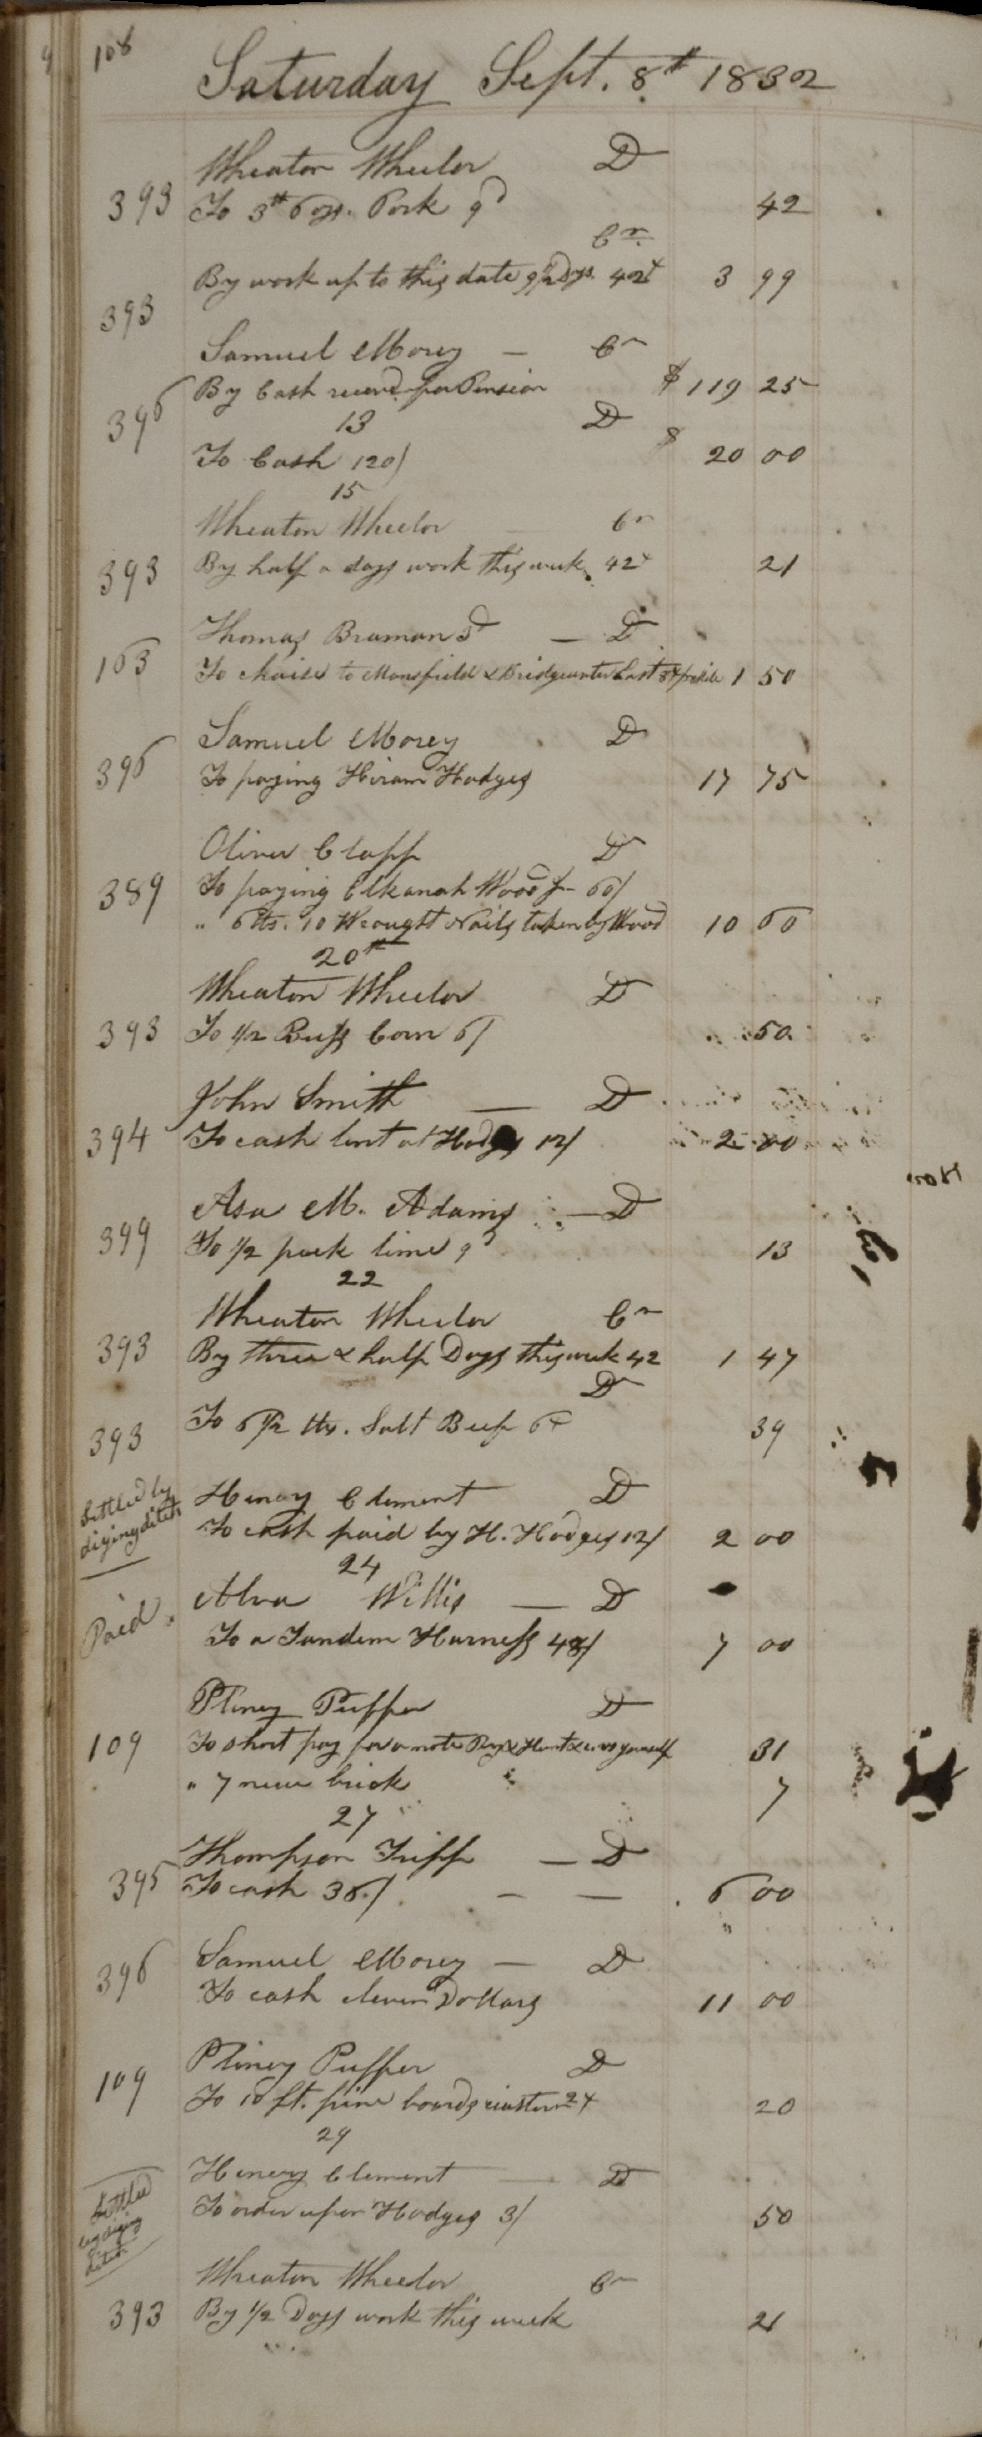 108
Saturday Sept. 8th 1832
Wheaton Wheelor D
393 To 3 # 6 ozs. Pork 9d 42
Cr
393 By work up to this date 9 1/2 Dys. 42 3 99
Samuel Morey — Cr
396 By Cash recevd for Pension $ 119 25
13 D
To Cash 120/ $ 20 00
15
Wheaton Wheelor Cr
393 By half a days work this week 42 21
Thomas Braman 3d — D
163 To Chaise to Mansfield & Bridgewater East 1 50
Samuel Morey D
396 To paying Hiram Hodges 17 75
Oliver Clapp D
389 To paying Elkanah Wood Jr 60/
" 6 lbs. 10 Wrought Nails taken by Wood 10 60
20th
Wheaton Wheelor D
393 To 1/2 Bush Corn 6/ 50
John Smith — D
394 To cash lent at Hodges 12/ 2 00
Asa M. Adams — D
399 To 1/2 peck lime 9d 13
22
Wheaton Wheelor Cr
393 By three & half Days this week 42 1 47
D
393 To 6 1/2 lbs. Salt Beef 6 39
Settled by
diging ditch
Henery Clement D
To cash paid by H. Hodges 12/ 2 00
24
Alva Willis — D
Paid. To a Tandem Harness 48/ 7 00
Pliney Puffer D
109 To short pay for a note Ray & Hunt & yourself 31
" 7 new brick 7
27
Thompson Tripp — D
395 To cash 36/ — — 6 00
Samuel Morey — D
396 To cash eleven Dollars 11 00
Pliney Puffer D
109 To 10 ft. pine boards 2 20
29
Henery Clement — D
Settled
by diging
ditch
To order upon Hodges 3/ 50
Wheaton Wheelor Cr
393 By 1/2 Days work this week 21